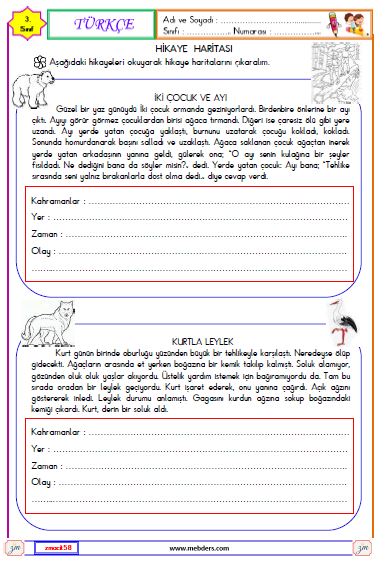 3.
Sınıf
TÜRKÇE
Adı ve Soyadı : ...............................................
Sınıfı : .................... Numarası : ....................
HİKAYE HARİTASI
Aşağıdaki hikayeleri okuyarak hikaye haritalarını çıkaralım.
İKİ ÇOCUK VE AYI
Güzel bir yaz günüydü İki çocuk ormanda geziniyorlardı. Birdenbire önlerine bir ayı
çıktı. Ayıyı görür görmez çocuklardan birisi ağaca tırmandı. Diğeri ise çaresiz ölü gibi yere
uzandı. Ay yerde yatan çocuğa yaklaştı, burnunu uzatarak çocuğu kokladı, kokladı.
Sonunda homurdanarak başını salladı ve uzaklaştı. Ağaca saklanan çocuk ağaçtan inerek
yerde yatan arkadaşının yanına geldi, gülerek ona; "O ay senin kulağına bir şeyler
fısıldadı. Ne dediğini bana da söyler misin?.. dedi. Yerde yatan çocuk: Ayı bana; "Tehlike
sırasında seni yalnız bırakanlarla dost olma dedi.. diye cevap verdi.
Kahramanlar : ..............................................................
Yer : ..............................................................
Zaman : ..............................................................
Olay : ..............................................................
..............................................................
KURTLA LEYLEK
Kurt günün birinde oburluğu yüzünden büyük bir tehlikeyle karşılaştı. Neredeyse ölüp
gidecekti. Ağaçların arasında et yerken boğazına bir kemik takılıp kalmıştı. Soluk alamıyor,
gözünden oluk oluk yaşlar akıyordu. Üstelik yardım istemek için bağıramıyordu da. Tam bu
sırada oradan bir leylek geçiyordu. Kurt işaret ederek, onu yanına çağırdı. Açık ağzını
göstererek inledi. Leylek durumu anlamıştı. Gagasını kurdun ağzına sokup boğazındaki
kemiği çıkardı. Kurt, derin bir soluk aldı.
Kahramanlar : ..............................................................
Yer : ..............................................................
Zaman : ..............................................................
Olay : ..............................................................
..............................................................
zm
zmacit58
www.mebders.com
zm